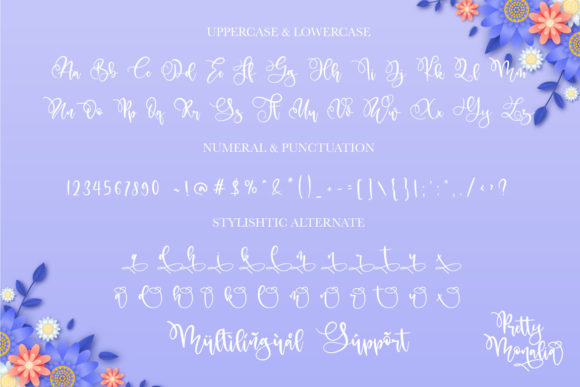 UPPERCASE & LOWERCASE
Aa Bb Cc Dd Ee Ff Gg Hh Ii Jj Kk Ll Mm
Nn Oo Pp Qq Rr Ss Tt Uu Vv Ww Xx Yy Zz
NUMERAL & PUNCTUATION
1234567890 ~!@#$%^&*()_+-=[]\{}|;':",./<>?
STYLISHTIC ALTERNATE
Multilingual Support
Pretty
Monalia